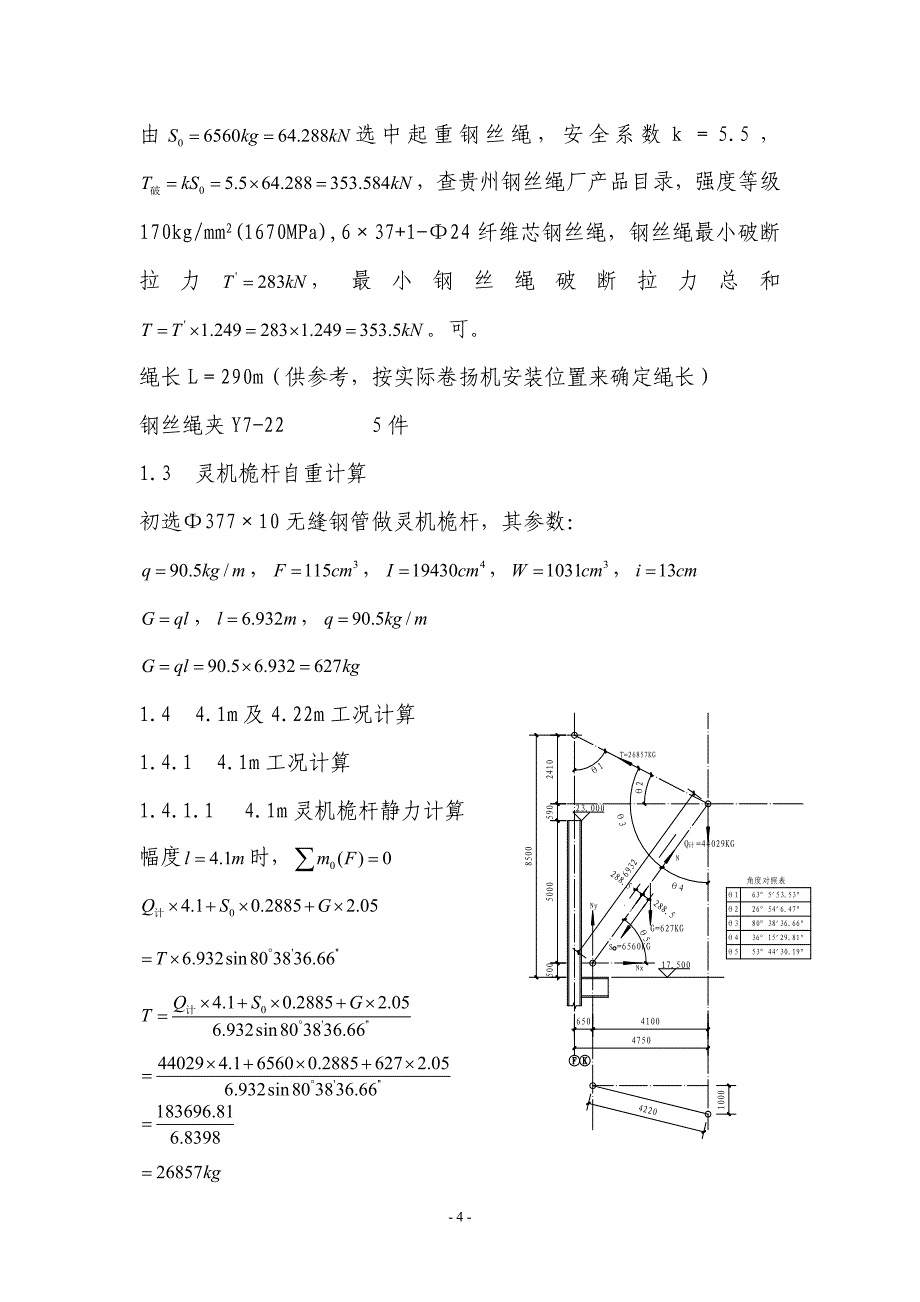 由 S₀=6560kg=64.288kN 选中起重钢丝绳，安全系数 k =5.5，
T破=kS₀=5.5×64.288=353.584kN，查贵州钢丝绳厂产品目录，强度等级
170kg/mm²(1670MPa),6×37+1-Φ24 纤维芯钢丝绳，钢丝绳最小破断
拉力 T'=283kN，最小钢丝绳破断拉力总和
T=T'×1.249=283×1.249=353.5kN。可。
绳长 L=290m（供参考，按实际卷扬机安装位置来确定绳长）
钢丝绳夹 Y7-22 5 件
1.3 灵机桅杆自重计算
初选Φ377×10 无缝钢管做灵机桅杆，其参数：
q=90.5kg/m，F=115cm³，I=19430cm⁴，W=1031cm³，i=13cm
G=ql，l=6.932m，q=90.5kg/m
G=ql=90.5×6.932=627kg
1.4 4.1m 及 4.22m 工况计算
1.4.1 4.1m 工况计算
1.4.1.1 4.1m 灵机桅杆静力计算
幅度 l=4.1m 时，∑m₀(F)=0
Q计×4.1+S₀×0.2885+G×2.05
=T×6.932sin80°38'36.66"
T=(Q计×4.1+S₀×0.2885+G×2.05)/(6.932sin80°38'36.66")
=(44029×4.1+6560×0.2885+627×2.05)/(6.932sin80°38'36.66")
=183696.81/6.8398
=26857kg
T=26857KG
θ1
θ2
θ3
θ4
θ5
2410
590
8500
5000
500
23.000
17.500
Q计=44029KG
N
6932
288.5
288.5
G=627KG
S₀=6560KG
Ny
Nx
650
4100
4750
F K
4220
1000
角度对照表
θ1 63° 5'53.53"
θ2 26° 54'6.47"
θ3 80° 38'36.66"
θ4 36° 15'29.81"
θ5 53° 44'30.19"
- 4 -